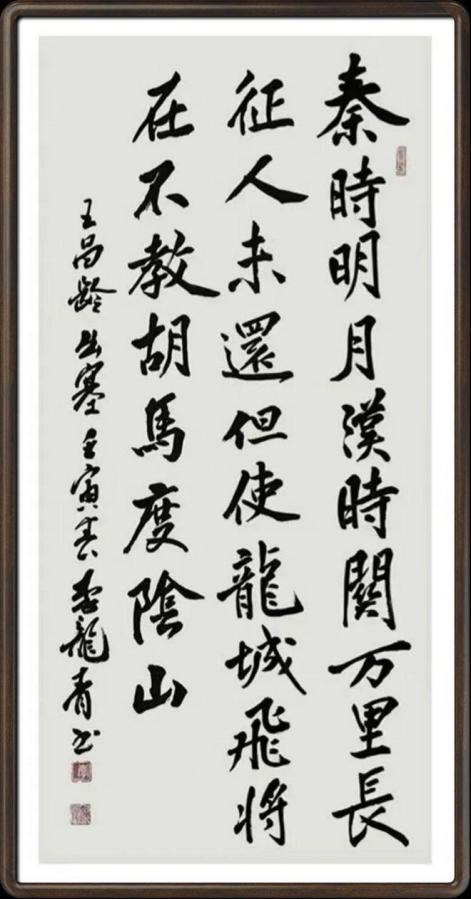 秦時明月漢時關万里長
征人未還但使龍城飛將
在不教胡馬度陰山
王昌龄出塞壬寅春李龍青书